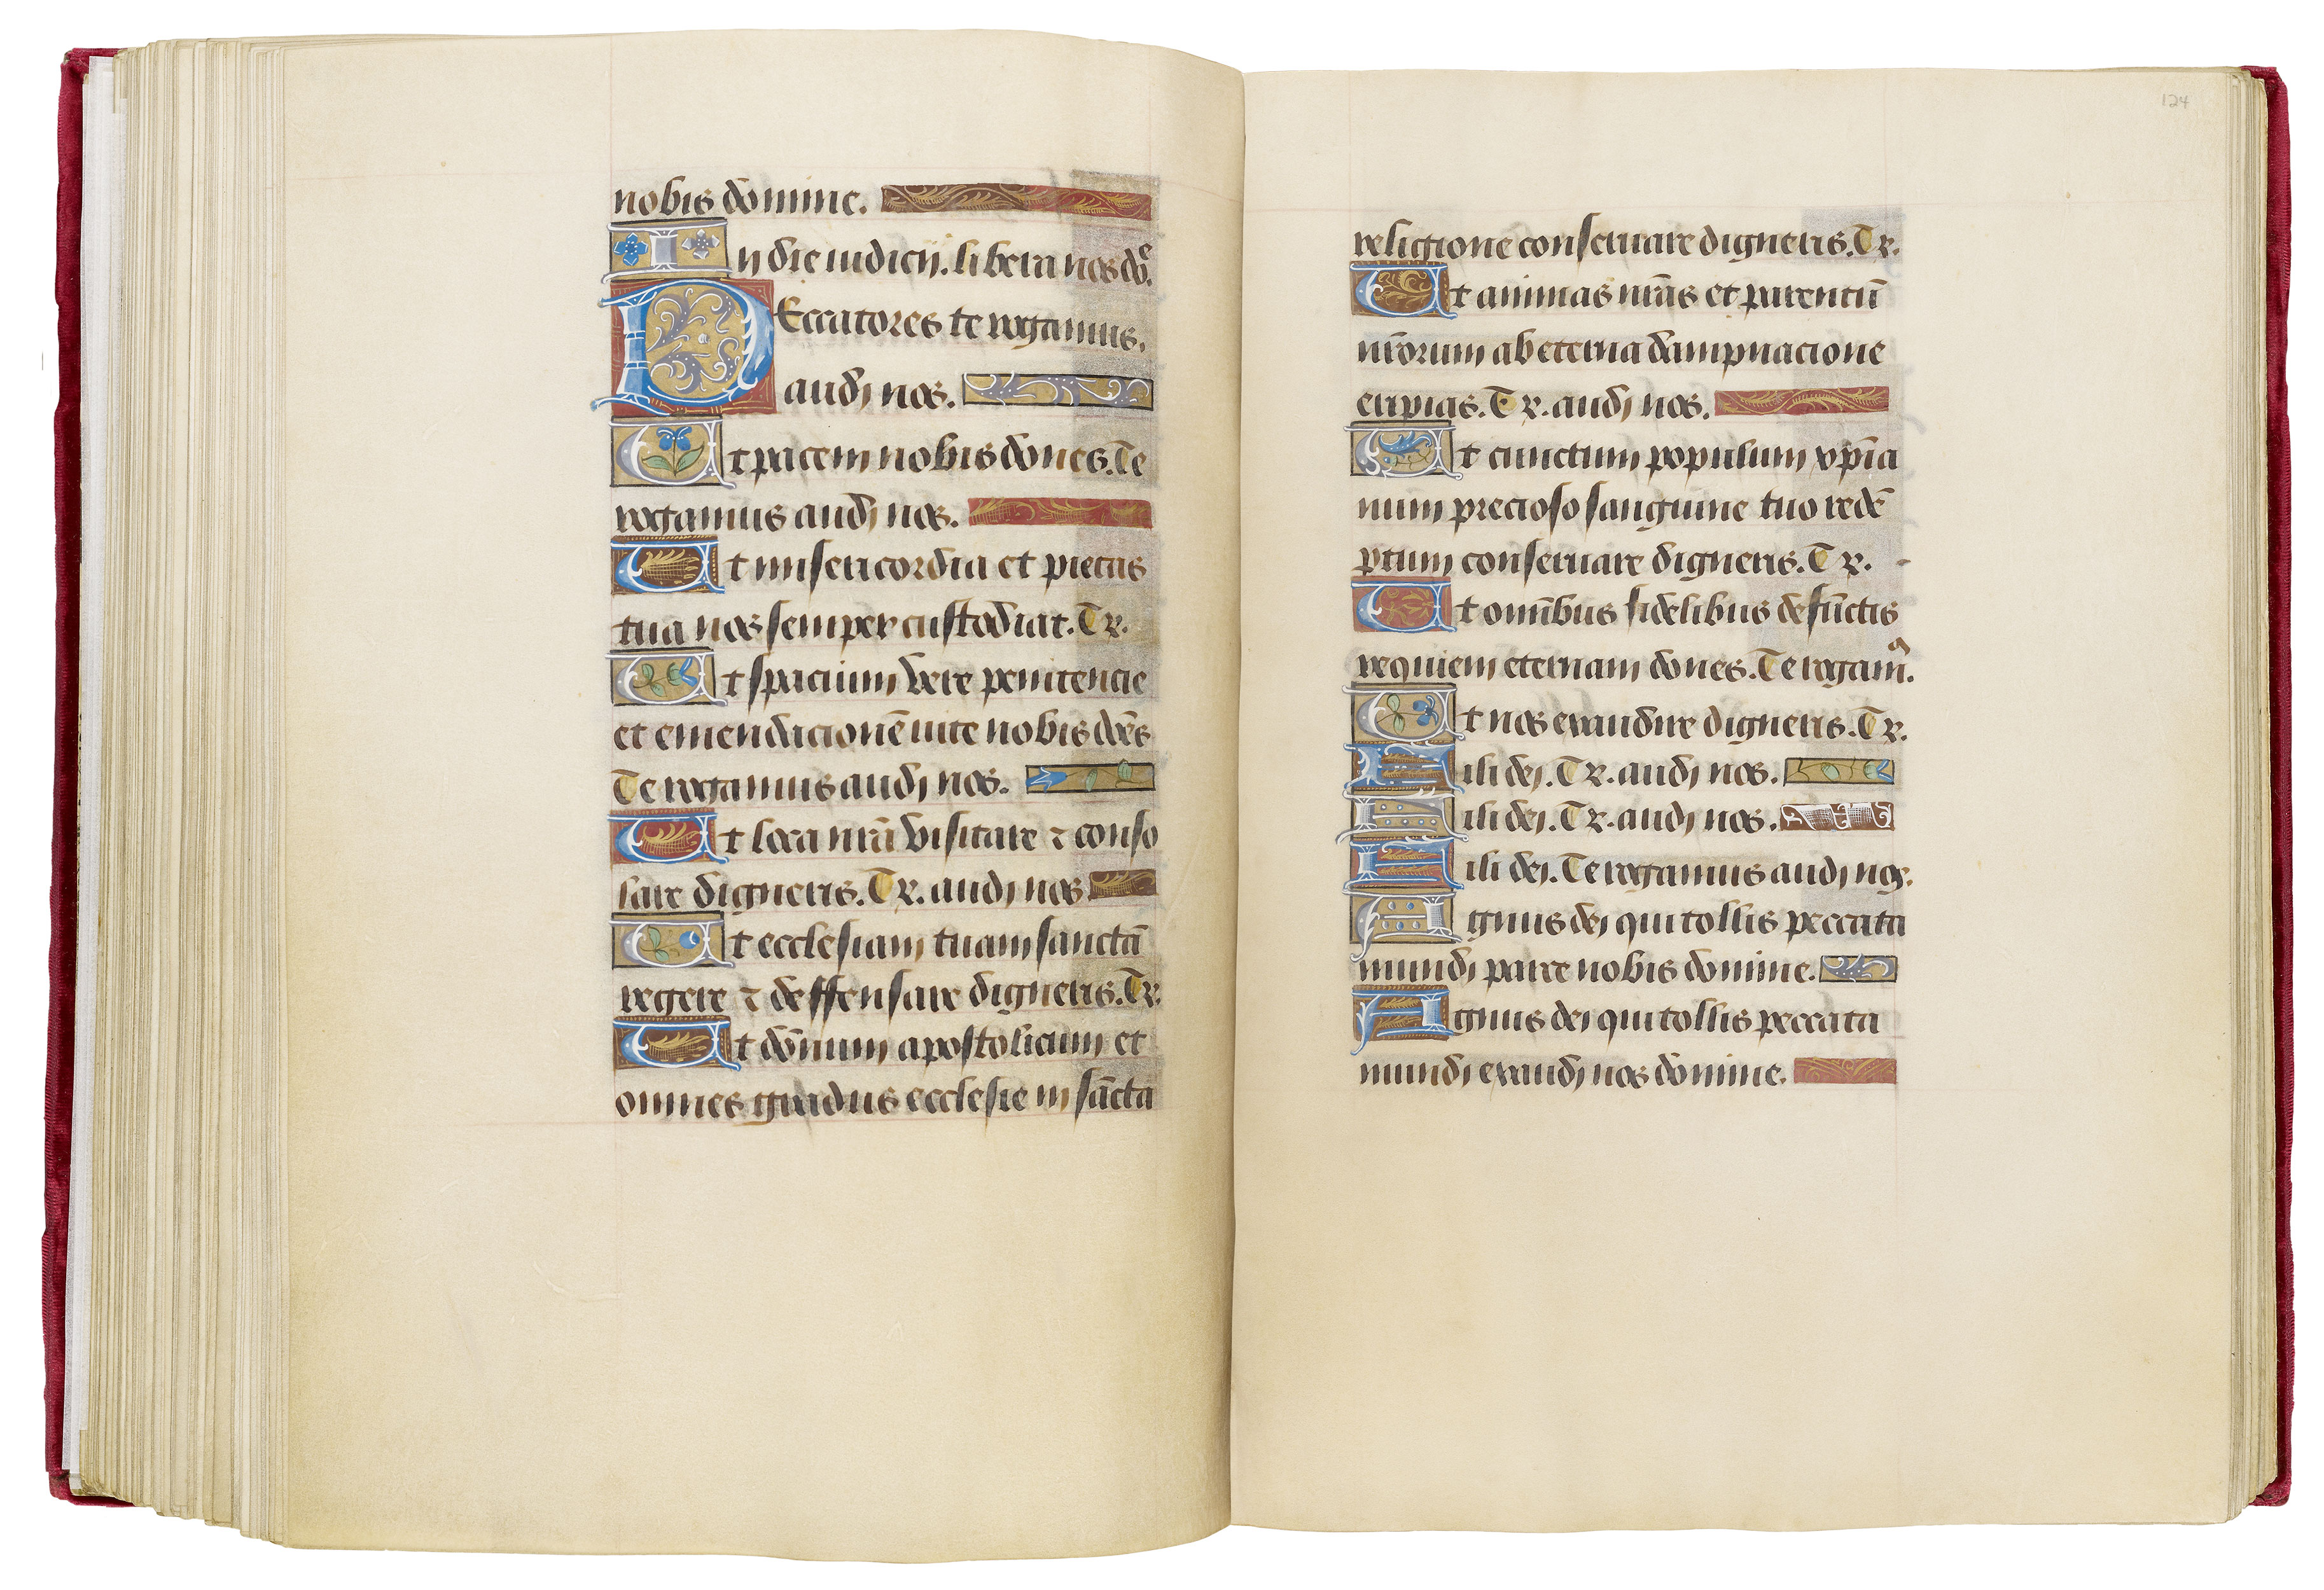 nobis dõmine.
In die iudicij. libera nos dõe.
PEccatores te rogamus.
audi nos.
Ut pacem nobis dones. Te
rogamus audi nos.
Ut misericordia et pietas
tua nos semper custodiat. T r.
Ut spacium vere penitencie
et emendacionẽ uite nobis dões
Te rogamus audi nos.
Ut loca nr̃a visitare ⁊ conso
lare digneris. T r. audi nos
Ut ecclesiam tuam sanctã
regere ⁊ deffensare digneris. Tr.
Ut dõmum apostolicum et
omnes gradus ecclesie in sãcta
124
religione conseruare digneris. T r.
Ut animas nr̃as et parentũ
nr̃orum ab eterna dampnacione
eripias. T r. audi nos.
Ut cunctum populum xp̃ia
num precioso sanguine tuo redẽ
ptum conseruare digneris. T r.
Ut omĩbus fidelibus defũctis
requiem eternam dones. Te rogam᷒.
Ut nos exaudire digneris. T r.
Fili dei. T r. audi nos.
Fili dei. T r. audi nos.
Fili dei. Te rogamus audi nos.
Agnus dei qui tollis peccata
mundi parce nobis domine.
Agnus dei qui tollis peccata
mundi exaudi nos dõmine.